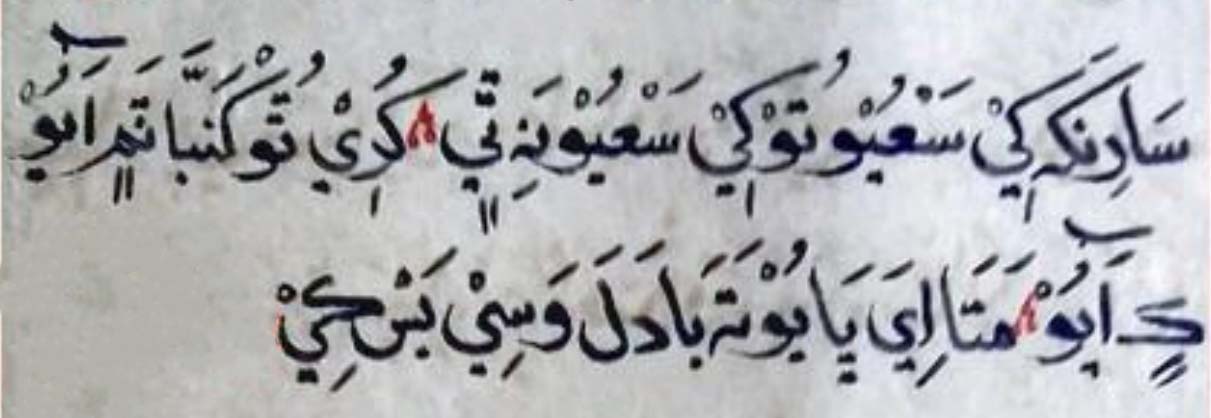 سَارِنكَه كَيْ سَعْيُوْ تُوْ كَيْ سَعْيُوْنَهِ تٍّي کَدُرِيْ تُوْ كَنْبَّا تَمٍ آبُوْ
كٍ آبُوْ مَتَا اِيَ پَا بُوْتَه بَادَلَ وَسِيْ بَسْ كِيْ